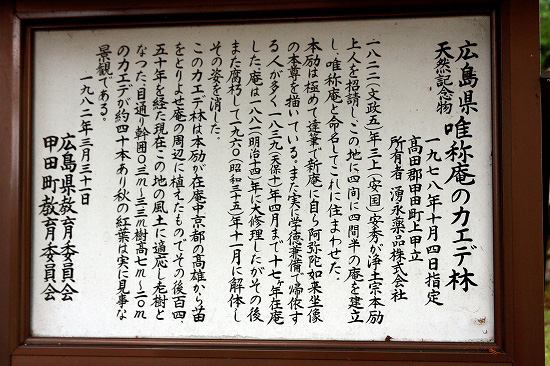 広島県
天然記念物 唯称庵のカエデ林
一九七八年十月四日指定
高田郡甲田町上甲立
所有者 湧永薬品株式会社
一八二二(文政五)年三上(安国)安秀が浄土宗本励
上人を招請し、この地に四間に四間半の庵を建立
し、唯称庵と命名してこれに住まわせた。
本励は極めて達筆で新庵に自ら阿弥陀如来坐像
の本尊を描いている。また実に学徳兼備で帰依す
る人が多く一八三九(天保十)年四月まで十七ヶ年在庵
した庵は一八八一(明治十四)年に大修理したがその後
また腐朽して一九六〇(昭和三十五)年十一月に解体し
その姿を消した。
このカエデ林は本励が在庵中京都の高雄から苗
をとりよせ庵の周辺に植えたものでその後百四、
五十年を経た現在この地の風土に適応し老樹と
なった、目通り幹囲〇.三m〜三.三m樹高七m〜二〇m
のカエデが約四十本あり秋の紅葉は実に見事な
景観である。
一九八二年三月三十一日
広島県教育委員会
甲田町教育委員会